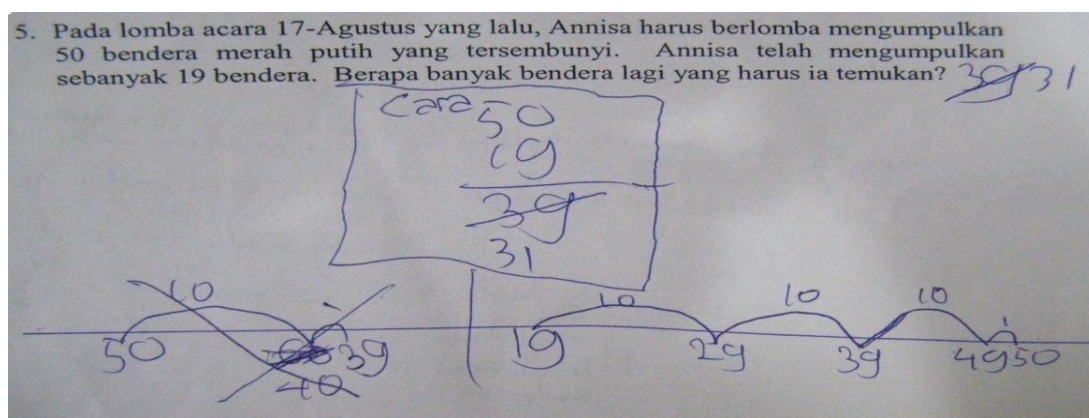 5. Pada lomba acara 17-Agustus yang lalu, Annisa harus berlomba mengumpulkan
50 bendera merah putih yang tersembunyi. Annisa telah mengumpulkan
sebanyak 19 bendera. Berapa banyak bendera lagi yang harus ia temukan? 39 31
Cara 50
19
39
31
10 1 10 10 10 1
50 40 39 19 29 39 49 50